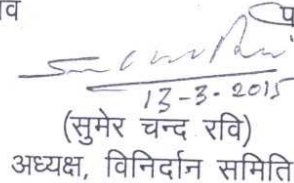 13-3-2015
(सुमेर चन्द रवि)
अध्यक्ष, विनिर्दान समिति